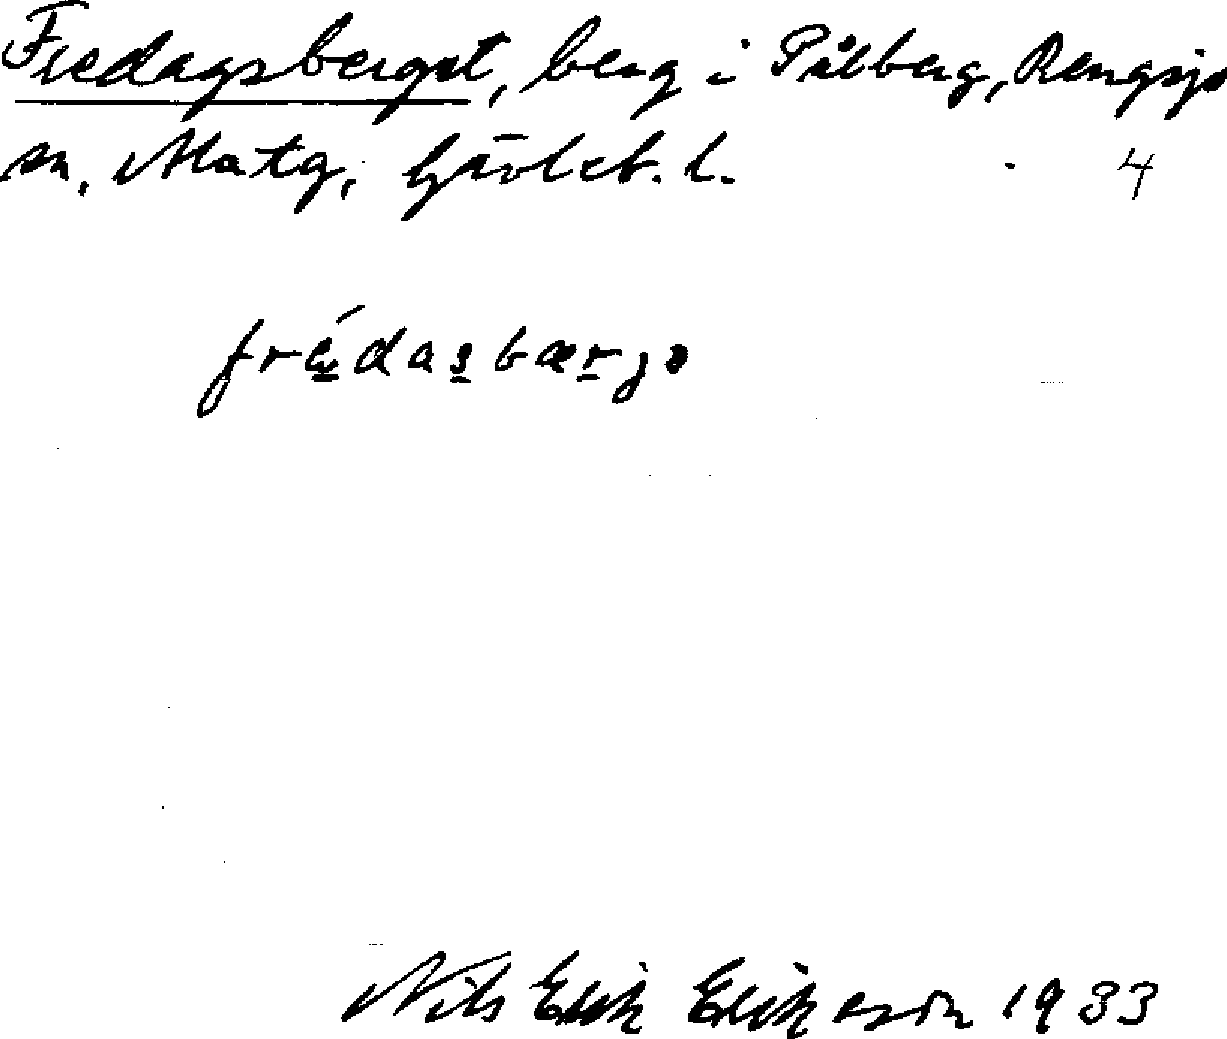 Fredagsberget, berg i Pålberg, Rengsjö
sn. Matg, Gävleb. l. 4
frédasbærjə
Nils Erik Eriksson 1933